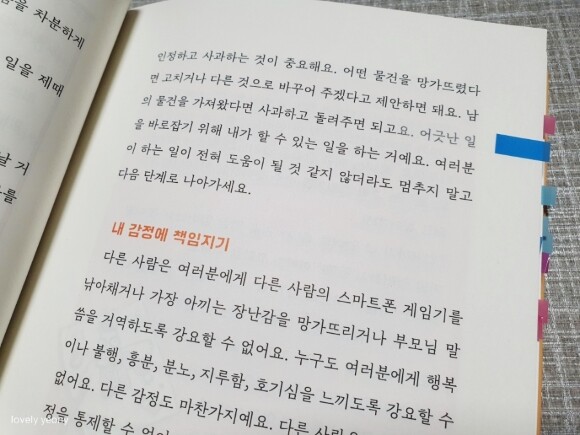 음을 차분하게
일을 제때
날 거
를
인정하고 사과하는 것이 중요해요. 어떤 물건을 망가뜨렸다
면 고치거나 다른 것으로 바꾸어 주겠다고 제안하면 돼요. 남
의 물건을 가져왔다면 사과하고 돌려주면 되고요. 어긋난 일
을 바로잡기 위해 내가 할 수 있는 일을 하는 거예요. 여러분
이 하는 일이 전혀 도움이 될 것 같지 않더라도 멈추지 말고
다음 단계로 나아가세요.
내 감정에 책임지기
다른 사람은 여러분에게 다른 사람의 스마트폰 게임기를
낚아채거나 가장 아끼는 장난감을 망가뜨리거나 부모님 말
씀을 거역하도록 강요할 수 없어요. 누구도 여러분에게 행복
이나 불행, 흥분, 분노, 지루함, 호기심을 느끼도록 강요할 수
없어요. 다른 감정도 마찬가지예요. 다른 사람
정을 통제할 수 없
lovely yeony